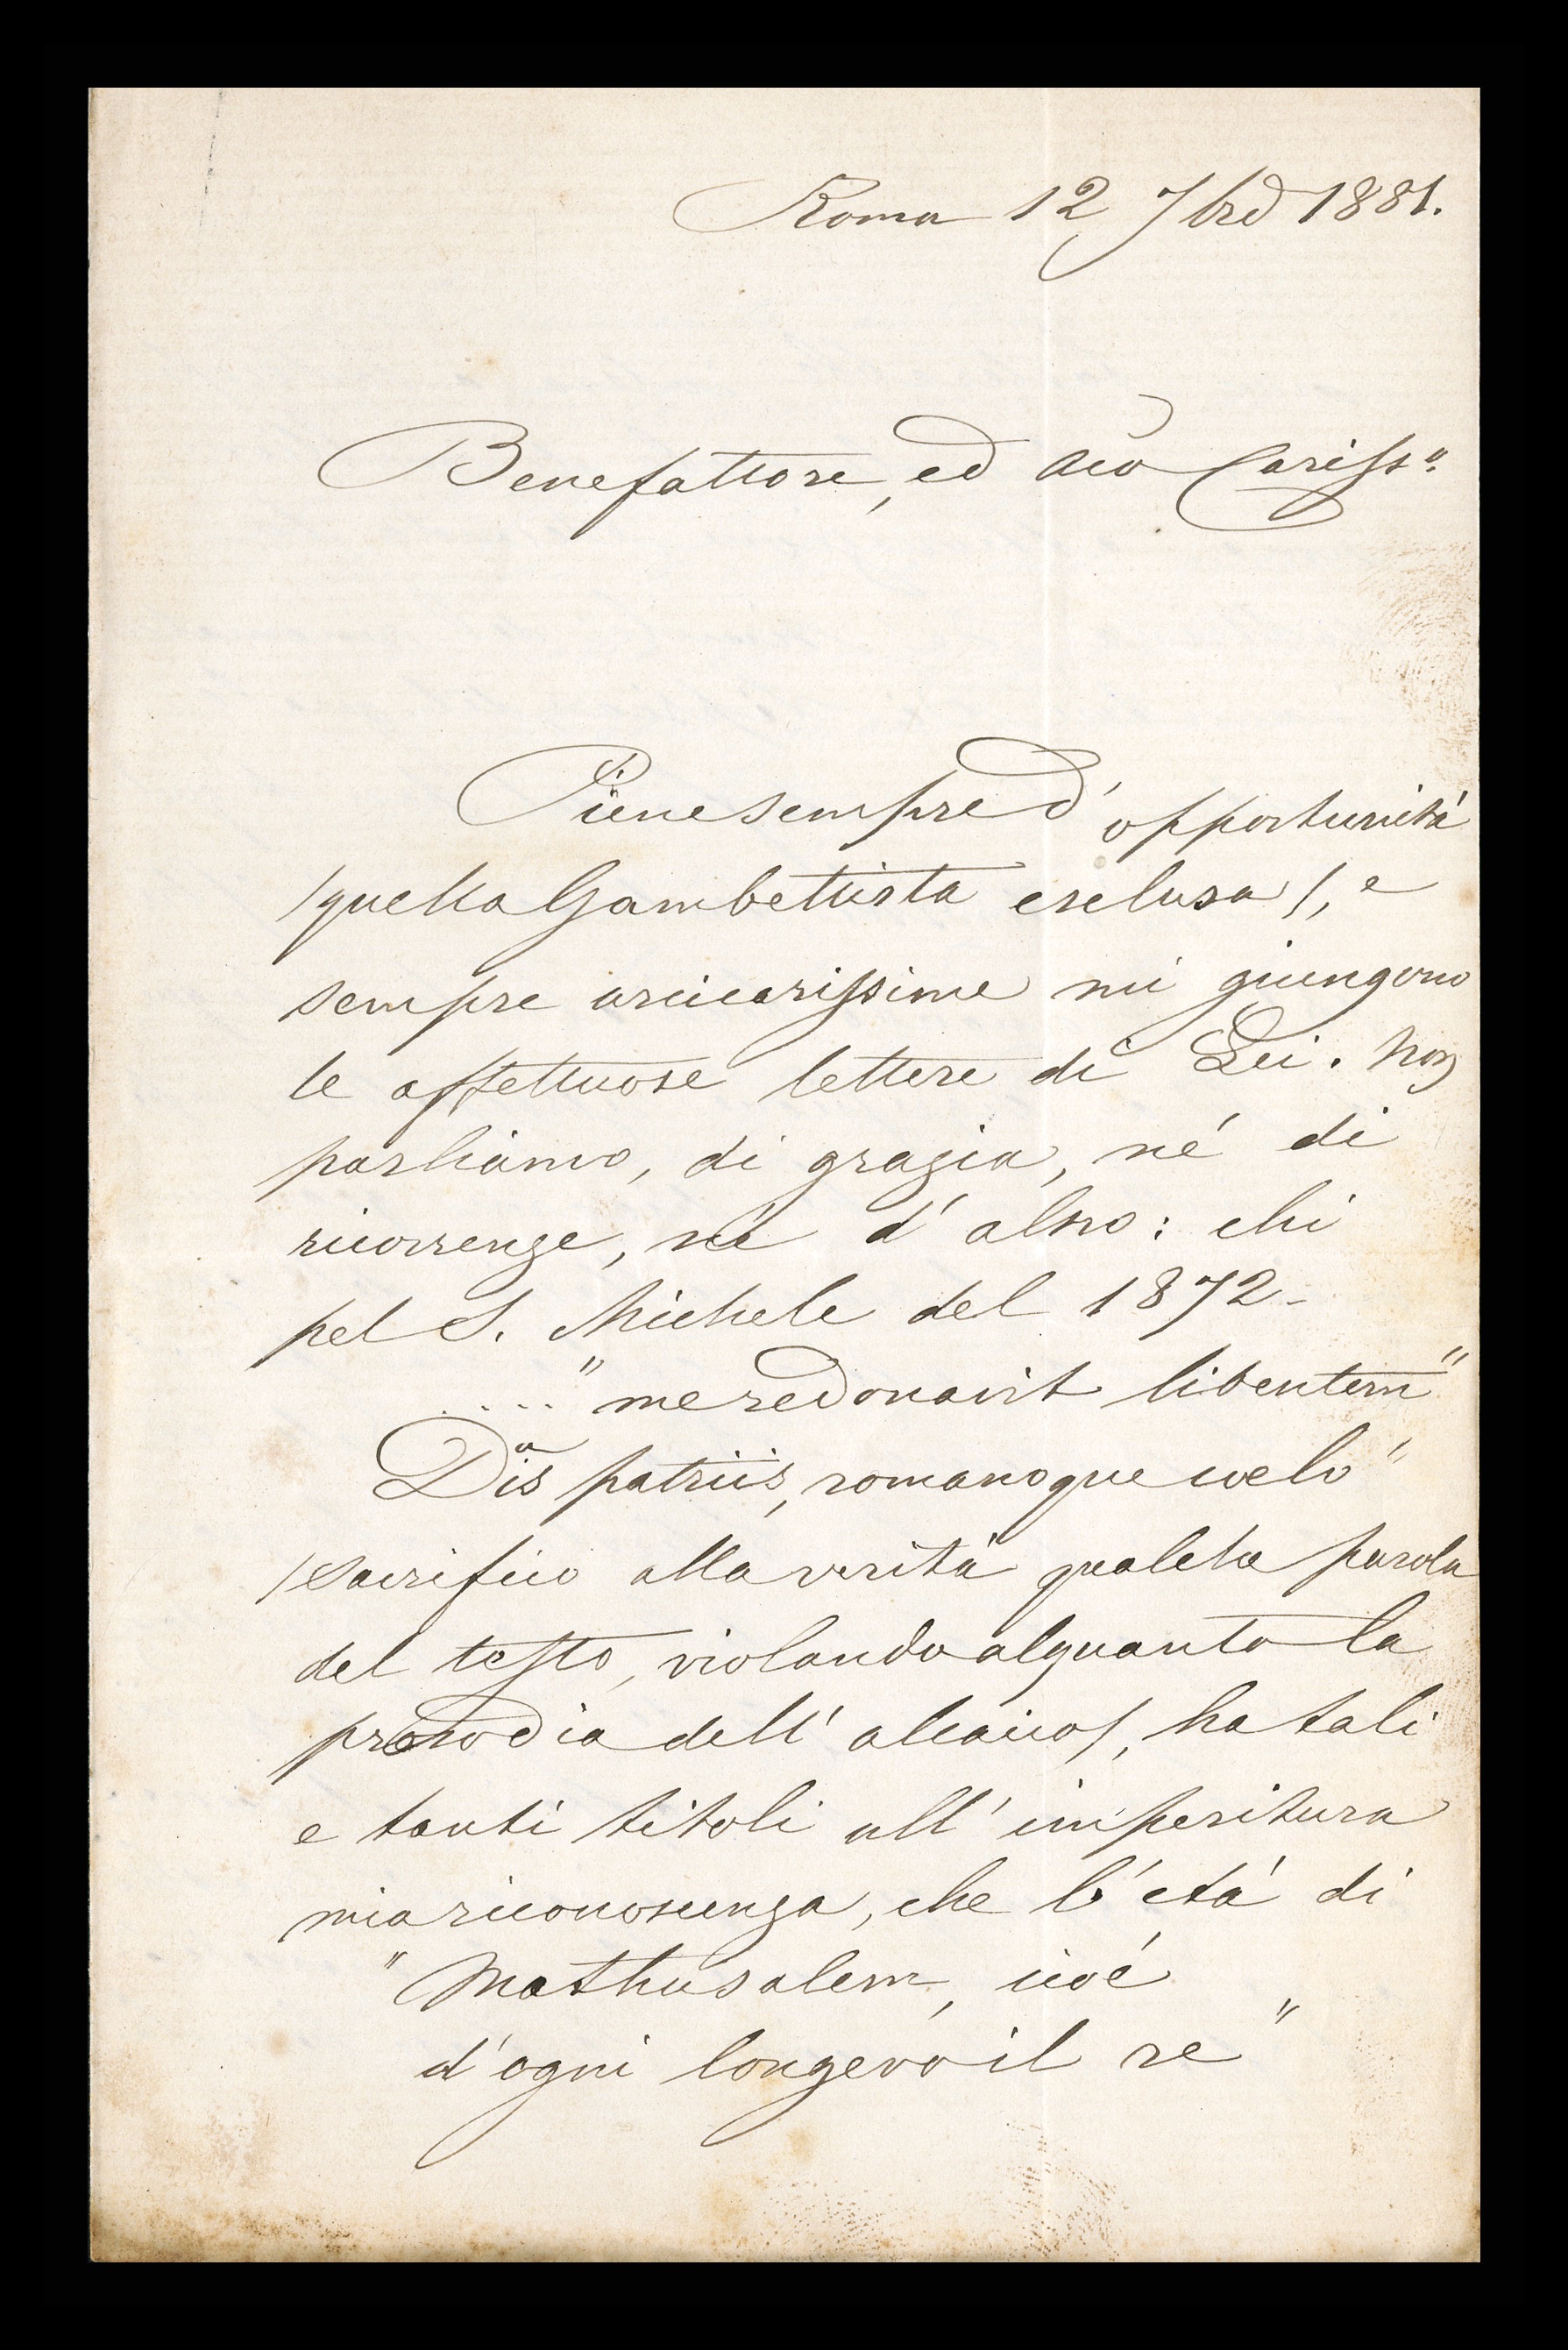 Roma 12 7bre 1881.
Benefattore, ed Aiō Cariss°.
Piene sempre d'opportunità
/quella Gambettista esclusa/, e
sempre arcicarissime mi giungono
le affettuose lettere di Lei. Non
parliamo, di grazia, né di
ricorrenze, né d'altro: chi
pel S. Michele del 1872 -
.... "me redonavit libentem"
Diis patriis, romanoque coelo"
/sacrifico alla verità qualche parola
del testo, violando alquanto la
prosodia dell'alcaico/, ha tali
e tanti titoli all'imperitura
mia riconoscenza, che l'età di
"Mathusalem, cioé
d'ogni longevo il re"